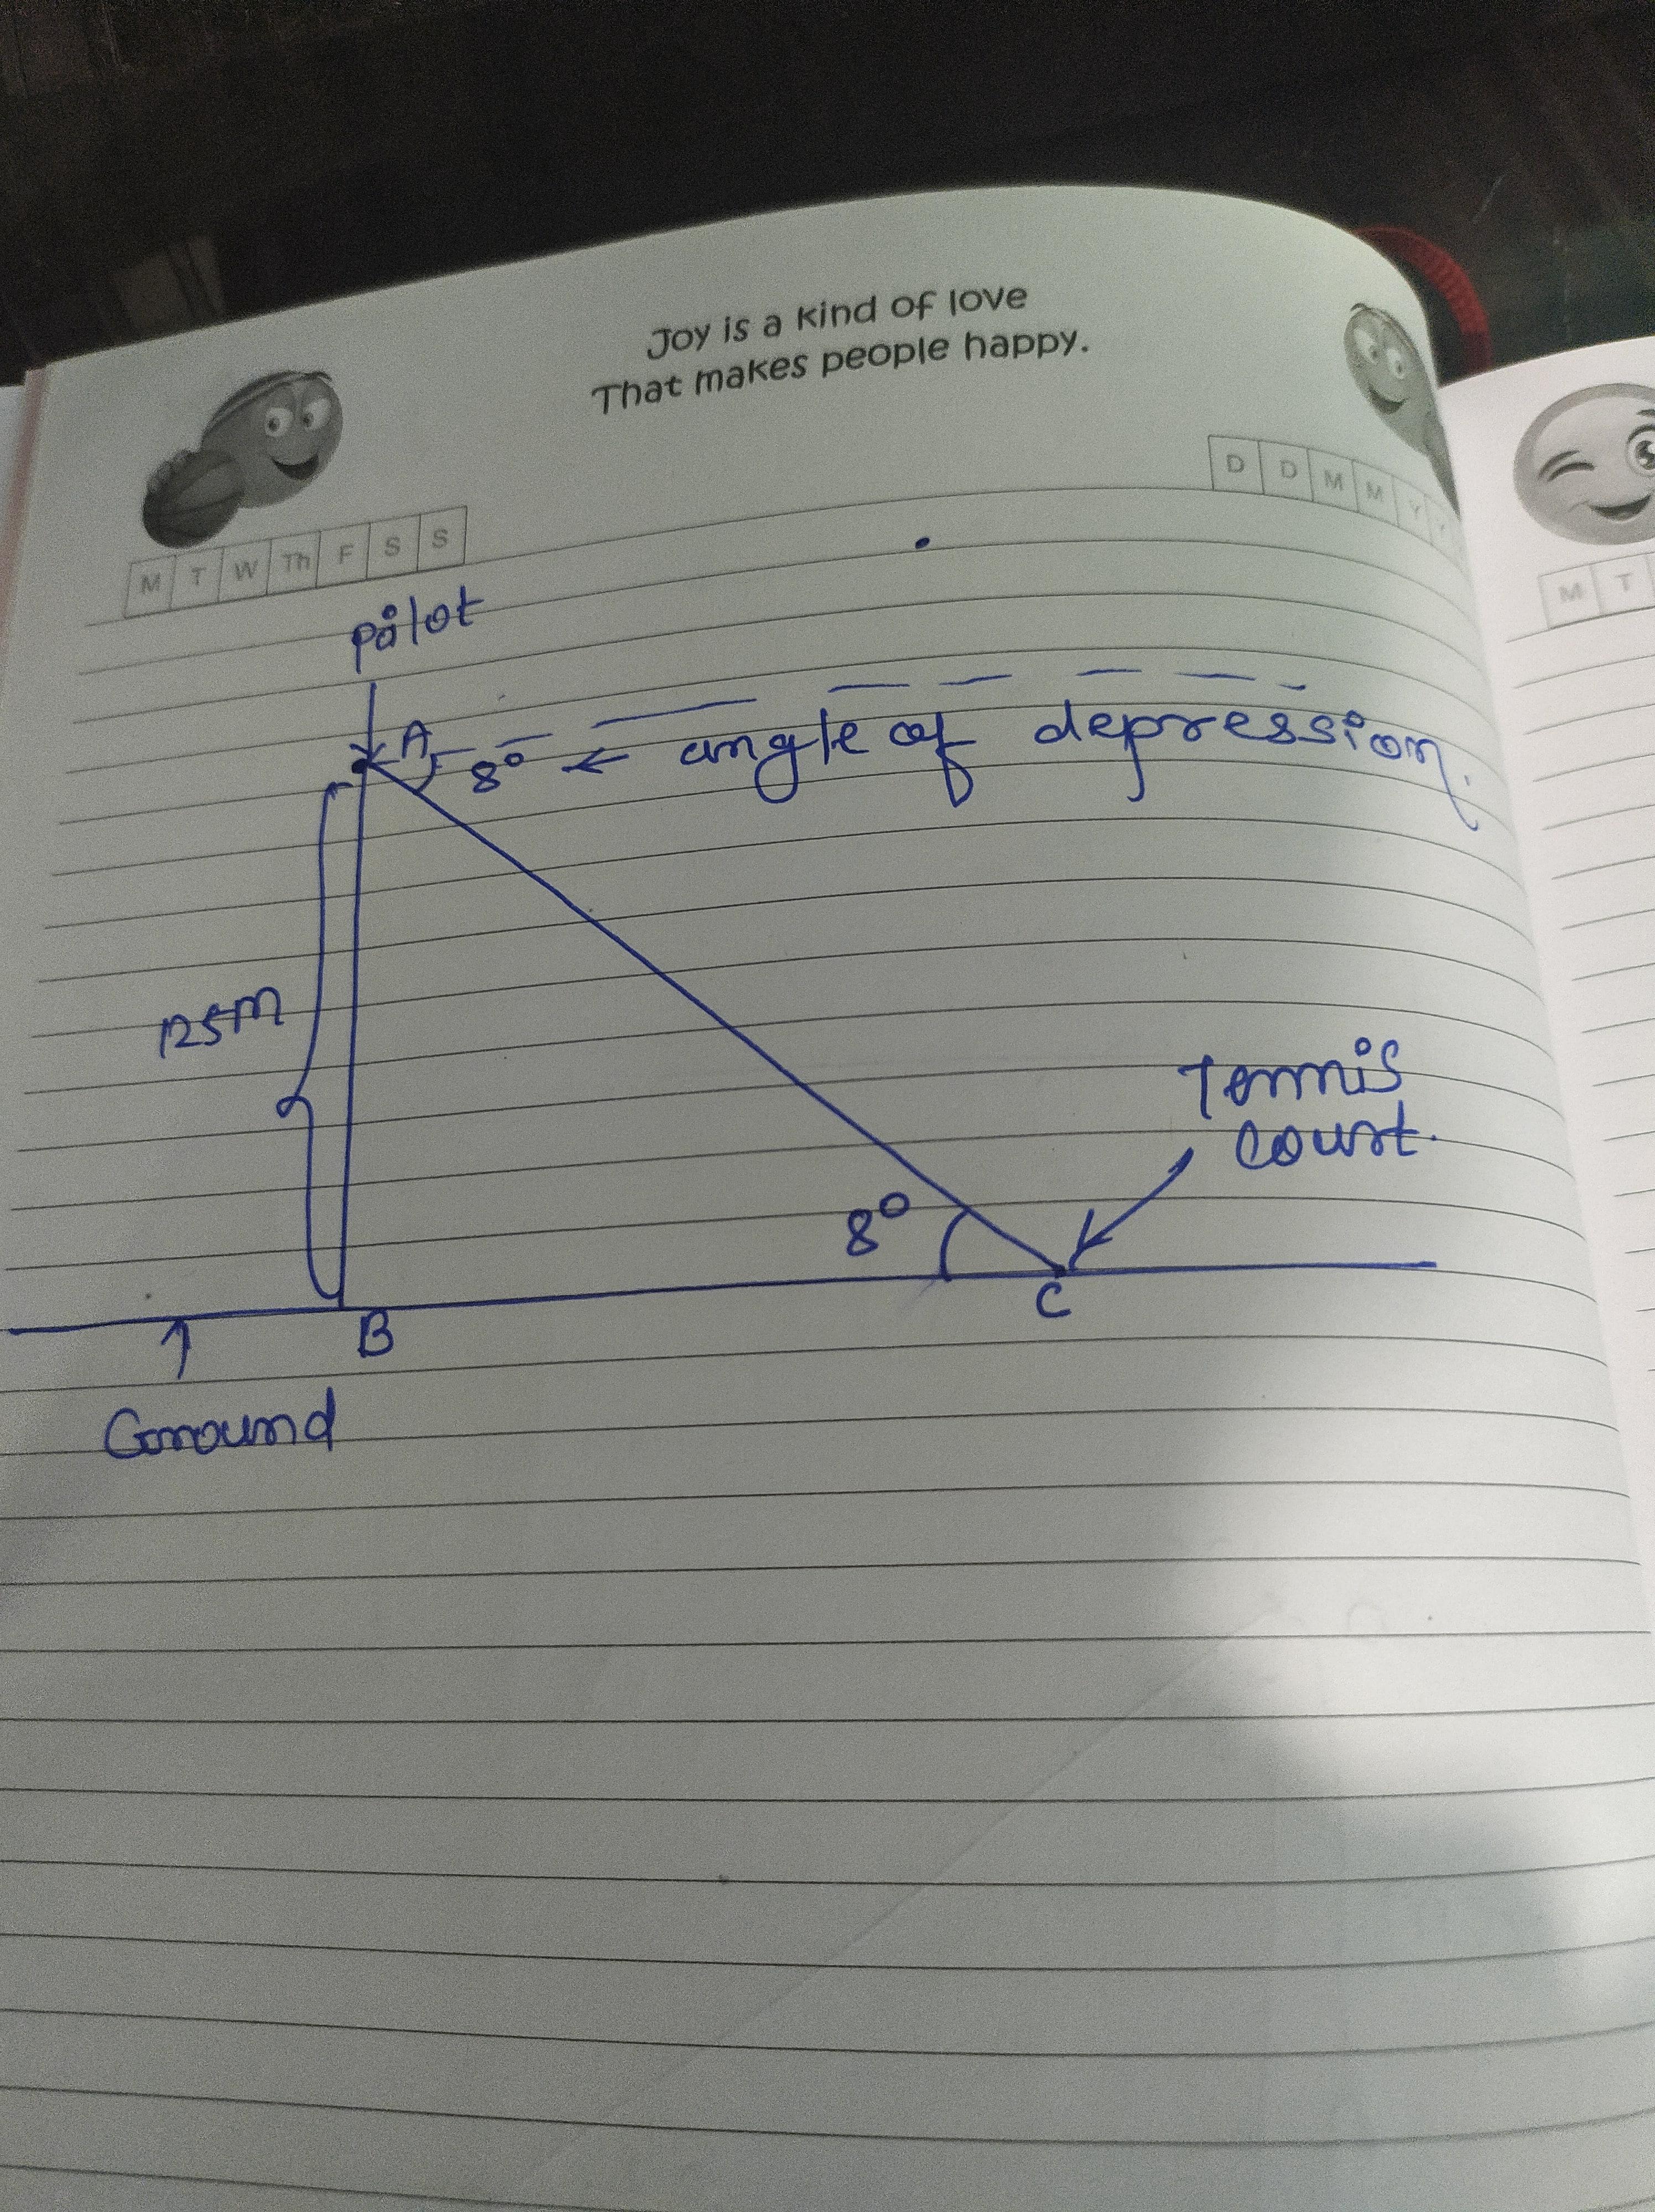 Joy is a kind of love
That makes people happy.
D D M M Y Y
M T W Th F S S
M T
pilot
A
8° ← angle of depression.
125m
Tennis
court.
8°
C
B
Ground